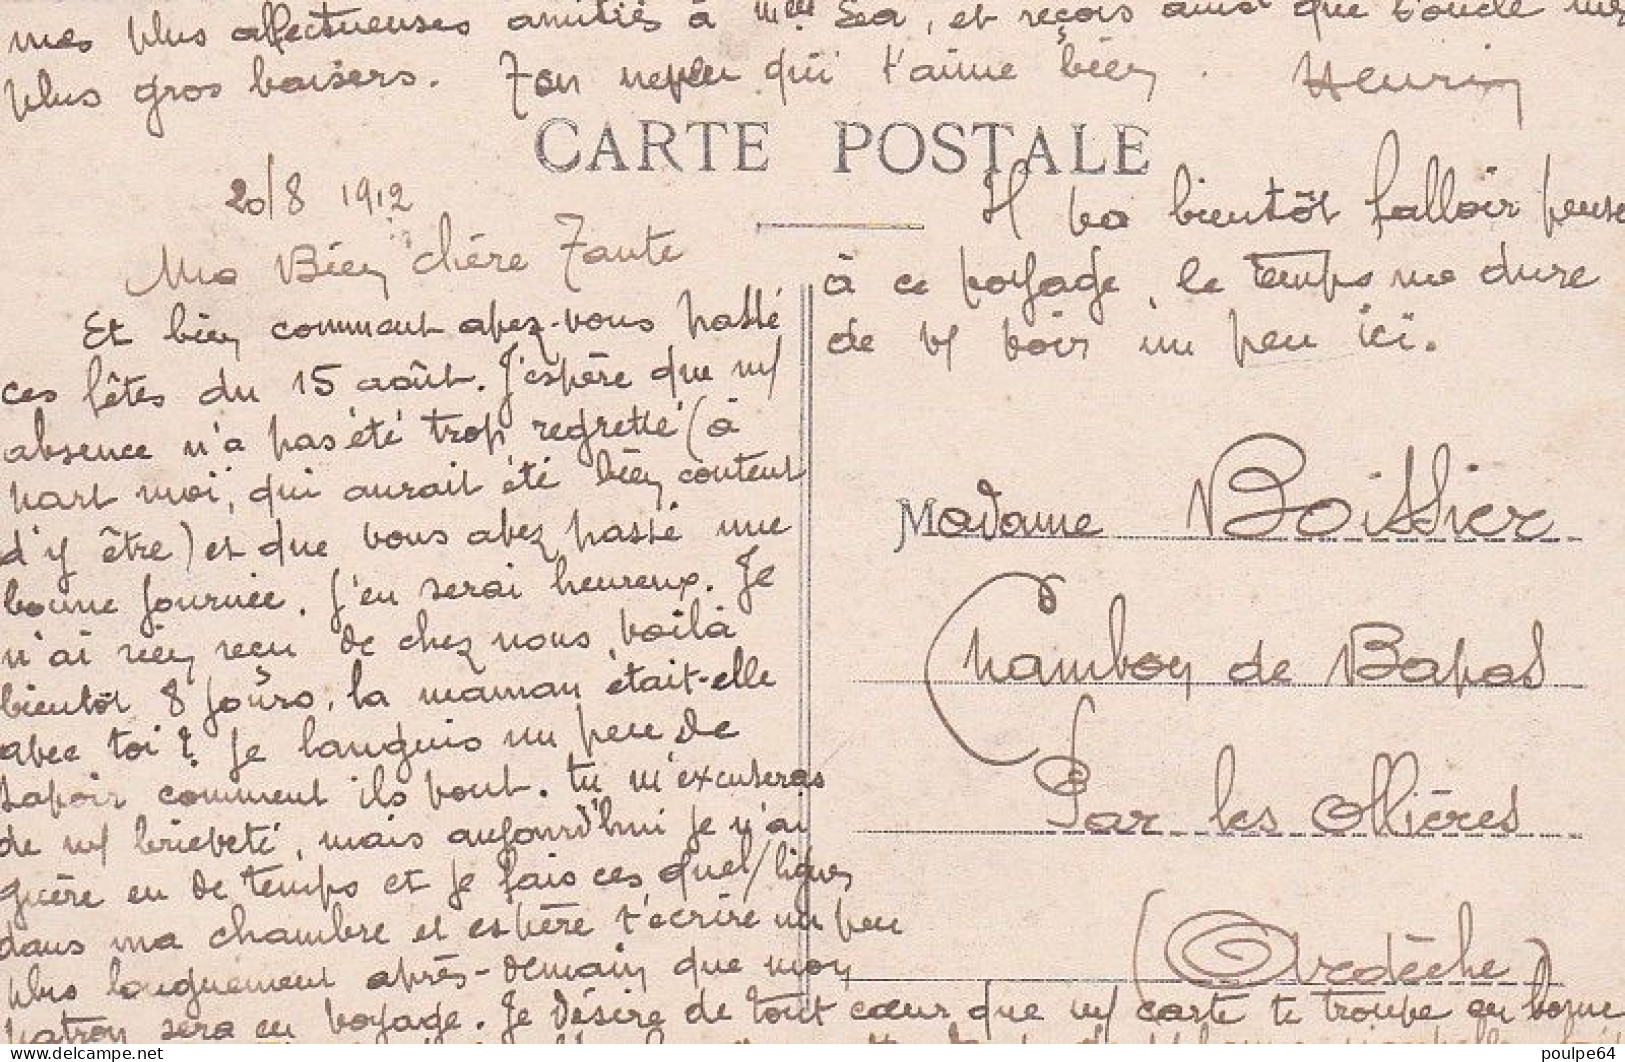 mes plus affectueuses amitiés à Mme Sea, et reçois ainsi que l'oncle mes
plus gros baisers. Ton neveu qui t'aime bien. Henri
CARTE POSTALE
20/8 1912
Ma Bien chère Tante
Et bien comment avez-vous passé
ces fêtes du 15 août. J'espère que m/
absence n'a pas été trop regretté (à
part moi, qui aurait été bien content
d'y être) et que vous avez passé une
bonne journée. J'en serai heureux. Je
n'ai rien reçu de chez nous, voilà
bientôt 8 jours, la maman était-elle
avec toi ? Je languis un peu de
savoir comment ils vont. tu m'excuseras
de m/ brièveté, mais aujourd'hui je n'ai
guère eu de temps et je fais ces quel/ lignes
dans ma chambre et espère t'écrire un peu
plus longuement après-demain que mon
patron sera en voyage. Je désire de tout cœur que m/ carte te trouve en bonne
Il va bientôt falloir pense
à ce voyage, le temps me dure
de vs voir un peu ici.
Madame Boissier
Chambon de Bavas
Par les Ollières
(Ardèche)
delcampe.net
poulpe64